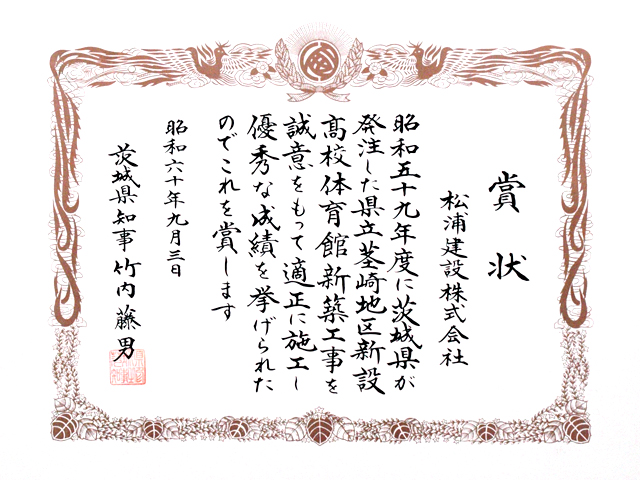 賞状
松浦建設株式会社
昭和五十九年度に茨城県が
発注した県立茎崎地区新設
高校体育館新築工事を
誠意をもって適正に施工し
優秀な成績を挙げられた
のでこれを賞します
昭和六十年九月三日
茨城県知事 竹内藤男